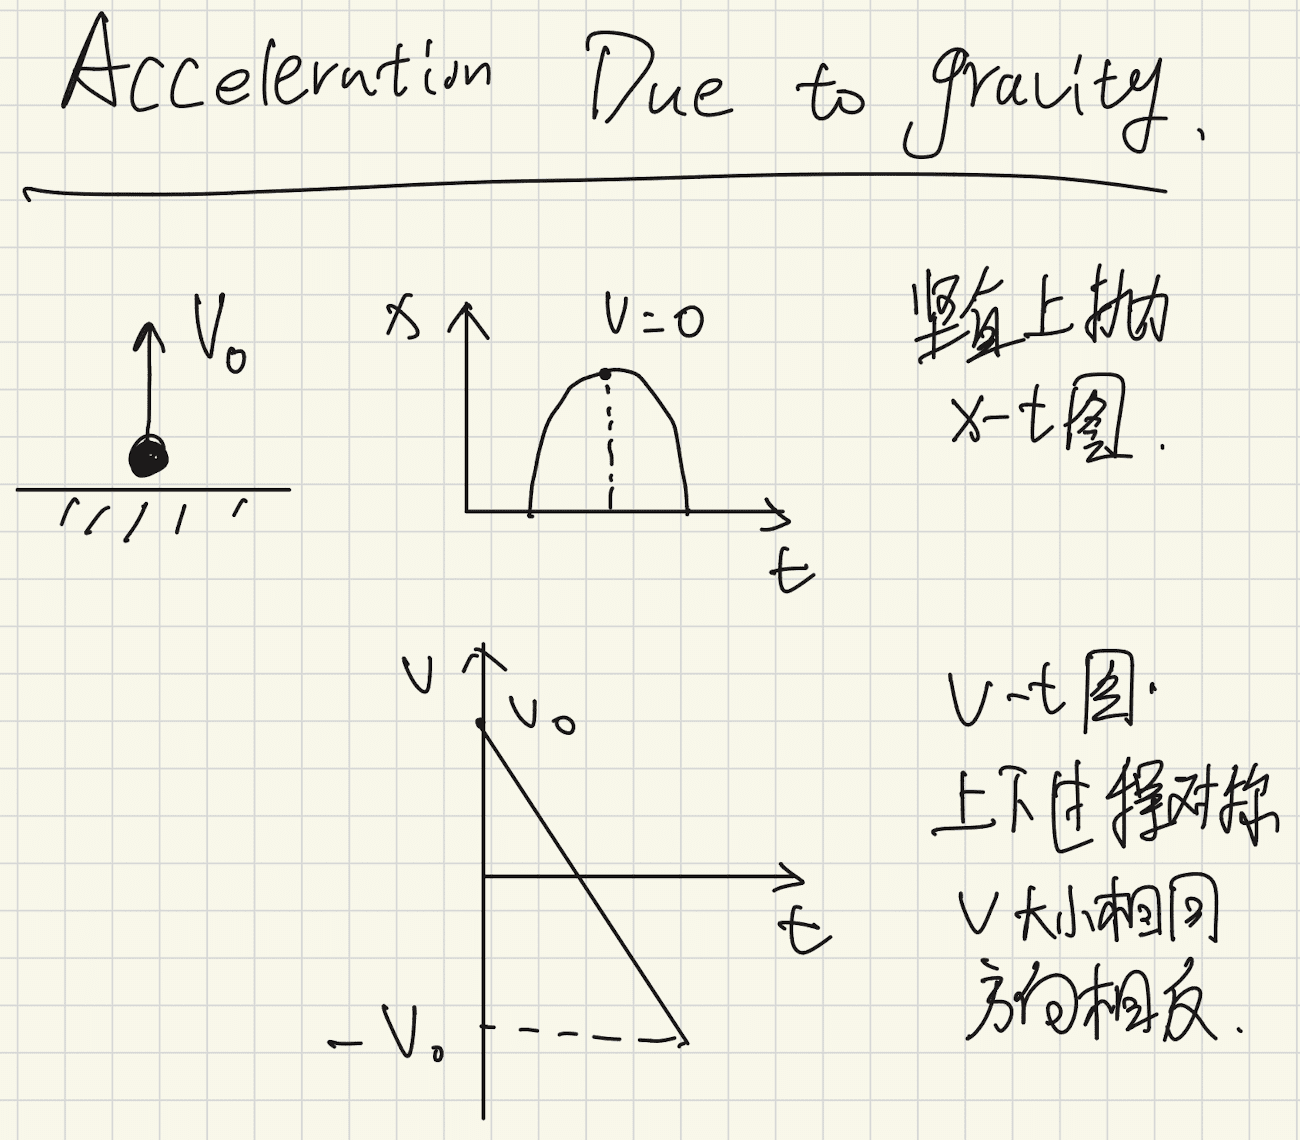 Acceleration Due to gravity.
V₀
x
v=0
竖直上抛
x-t图.
t
v
v₀
v-t图.
上下过程对称
t
v大小相同
方向相反.
-V₀